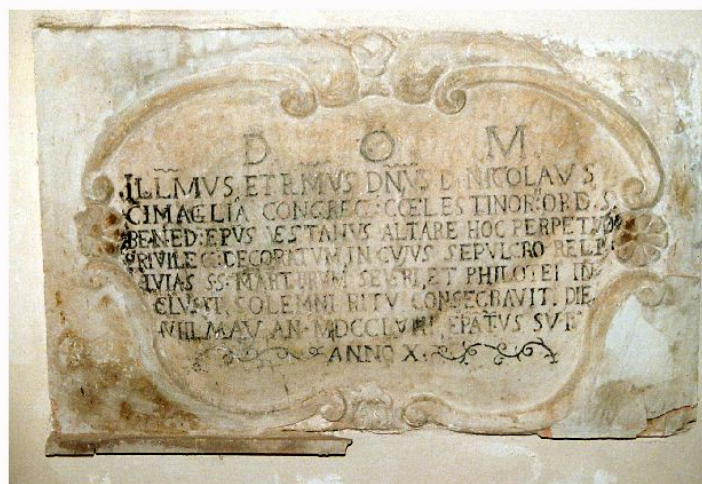 D. O. M.
ILLMVS, ET RMVS DNVS D. NICOLAVS
CIMAGLIA CONGREG: CŒLESTINOR: ORD. S.
BENED: EPUS VESTANUS ALTARE HOC PERPETVO
PRIVILEG: DECORATUM, IN CUJUS SEPULCRO RELI
QVIAS SS. MARTURUM SEVERI, ET PHILOTEI IN
CLUSIT, SOLEMNI RITU CONSECRAVIT. DIE
MAV AN. EPATUS SVI
ANNO X.